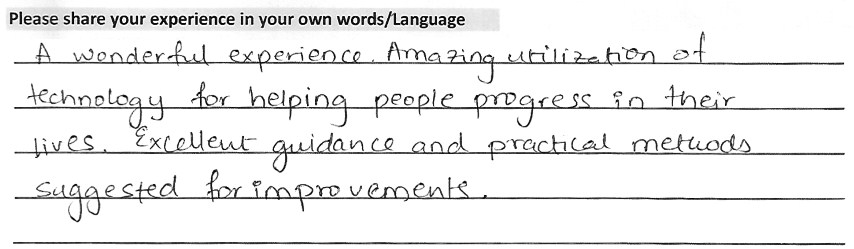 Please share your experience in your own words/Language
A wonderful experience. Amazing utilization of
technology for helping people progress in their
lives. Excellent guidance and practical methods
suggested for improvements.